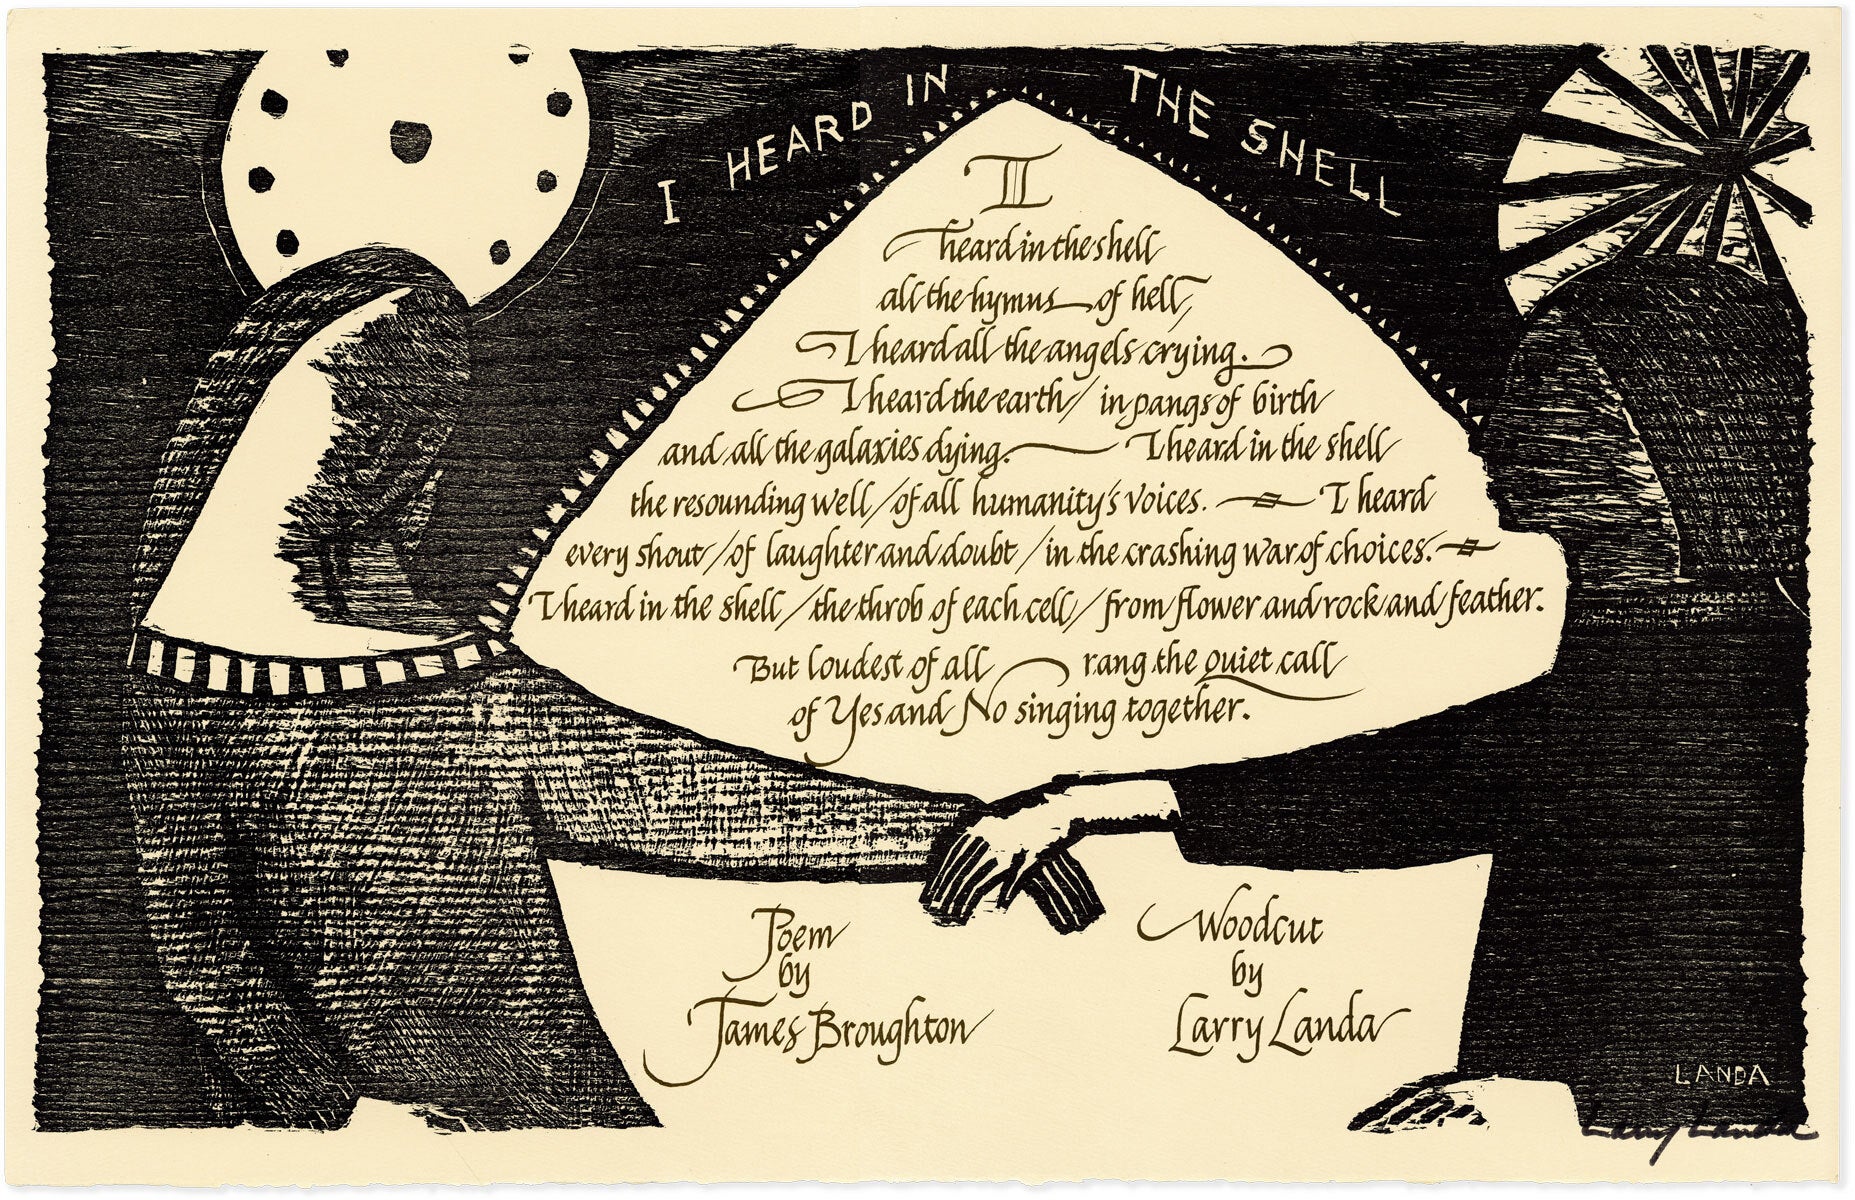 I HEARD IN THE SHELL
I
heard in the shell
all the hymns of hell,
I heard all the angels crying.
I heard the earth / in pangs of birth
and all the galaxies dying. I heard in the shell
the resounding well / of all humanity's voices. I heard
every shout / of laughter and doubt / in the crashing war of choices.
I heard in the shell / the throb of each cell / from flower and rock and feather.
But loudest of all rang the quiet call
of Yes and No singing together.
Poem
by
James Broughton
Woodcut
by
Larry Landa
LANDA
Larry Landa